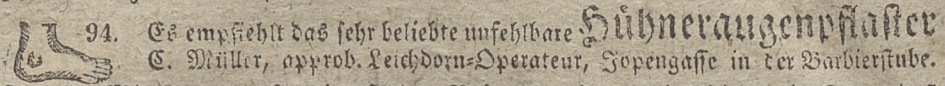 94. Es empfiehlt das sehr beliebte unfehlbare Hühneraugenpflaster
C. Müller, approb. Leichdorn-Operateur, Jopengasse in der Barbierstube.